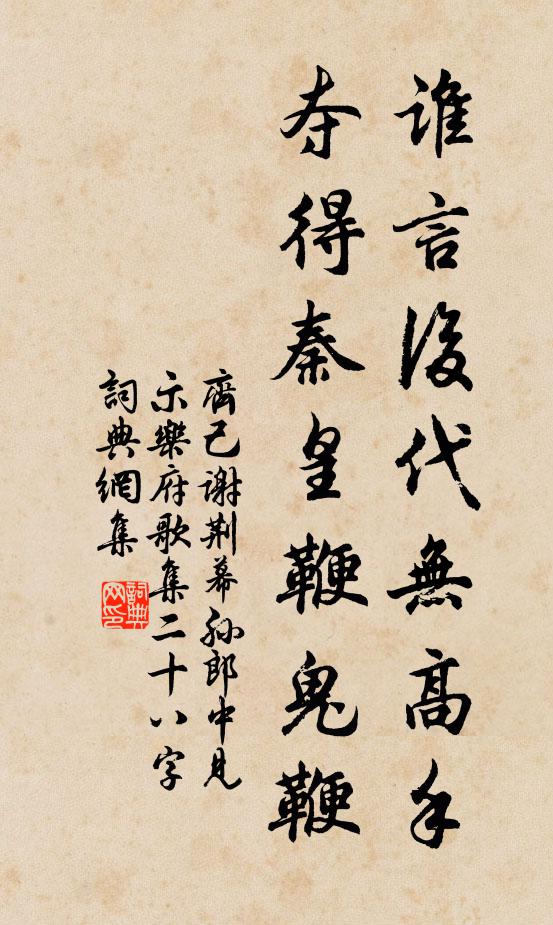 誰言後代無高手
奪得秦皇鞭鬼鞭
齊己謝荆幕孙郎中見
示樂府歌集二十八字
詞典網集
詞典
网印